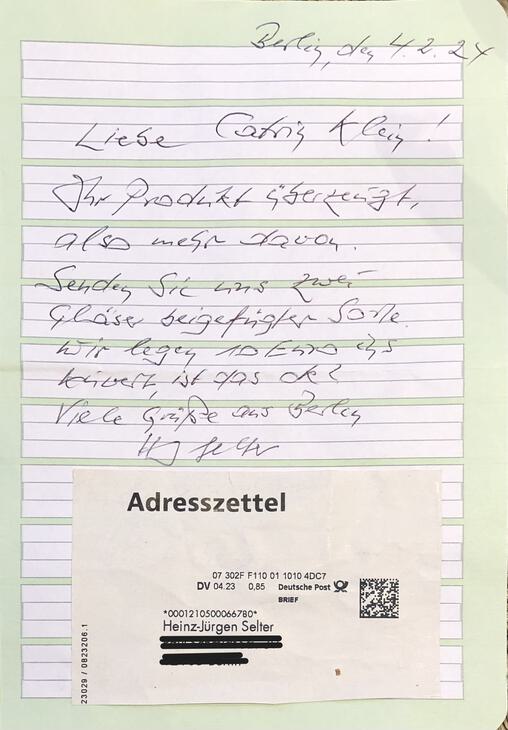 Berlin, den 4.2.24
Liebe Catrin Klein!
Ihr Produkt überzeugt,
also mehr davon.
Senden Sie uns zwei
Gläser beigefügter Sorte.
Wir legen 10 Euro ins
Kuvert, ist das ok?
Viele Grüße aus Berlin
HJ Selter
Adresszettel
07 302F F110 01 1010 4DC7
DV 04.23 0,85 Deutsche Post
BRIEF
*0001210500066780*
Heinz-Jürgen Selter
23029 / 0823206.1